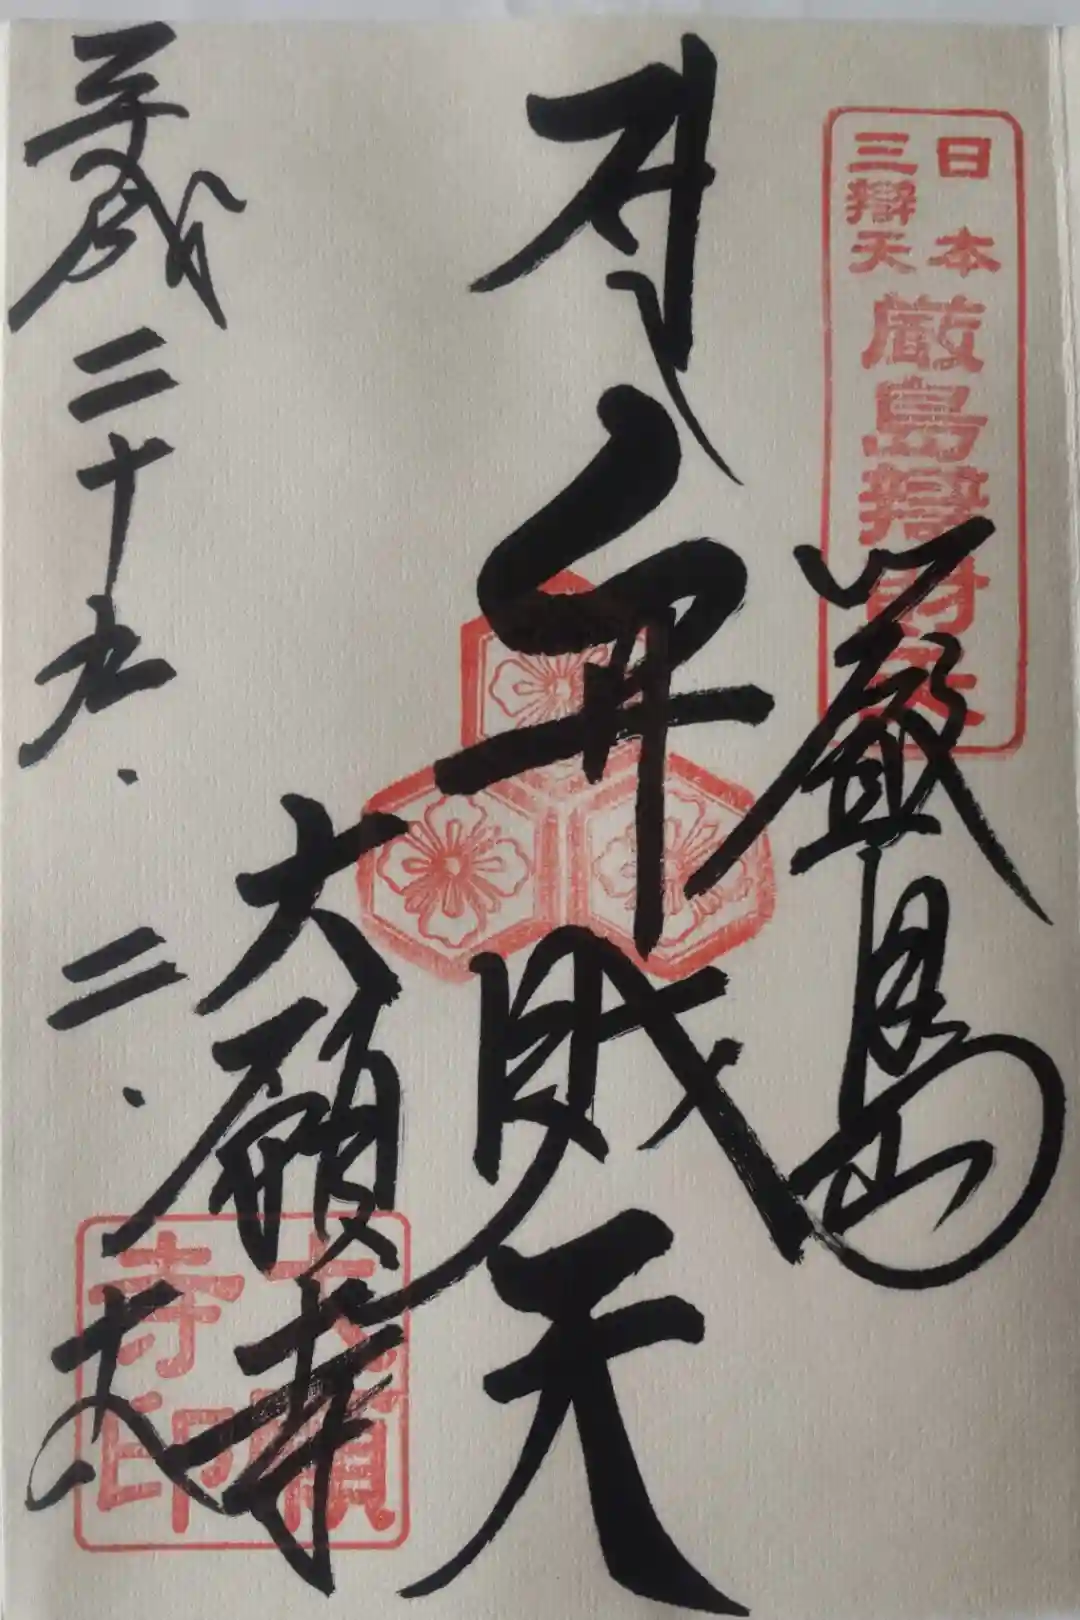 日本
三辯天
厳島辯財天
厳島
弁財天
大願寺
平成二十九.二.
大願
寺印